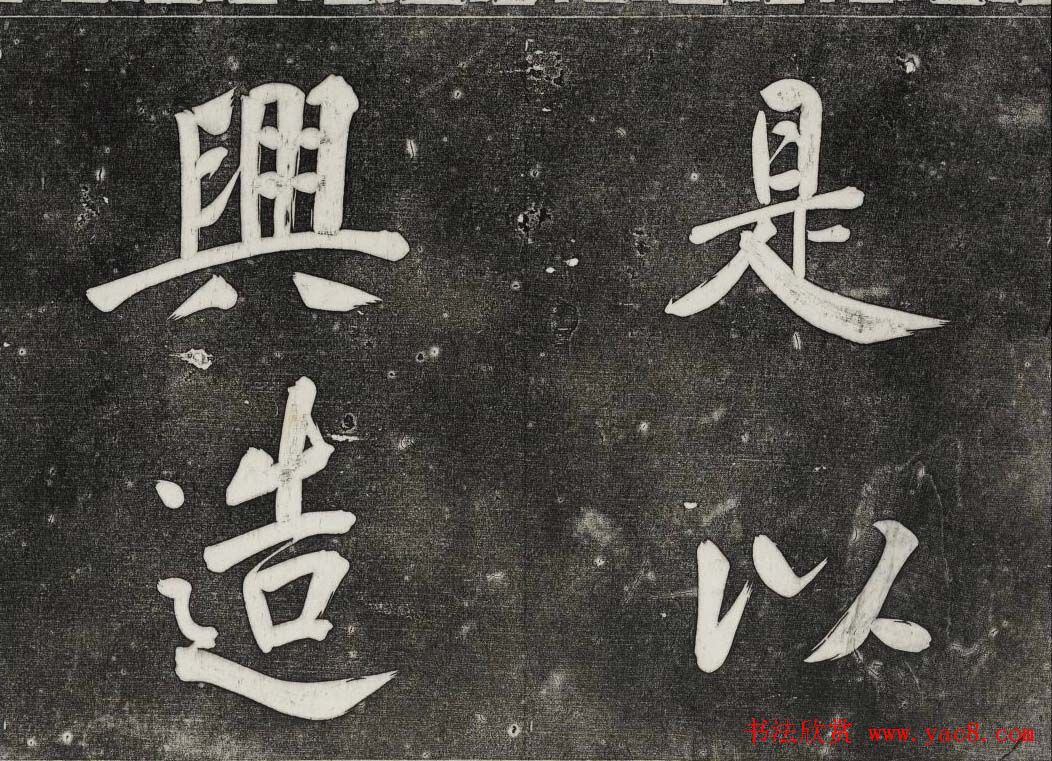 是以
興造
书法欣赏 www.yac8.com